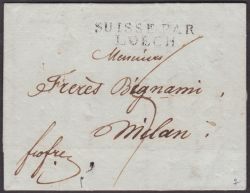 SUISSE PAR
LOECH
Messieurs
Freres Bignami
Milan